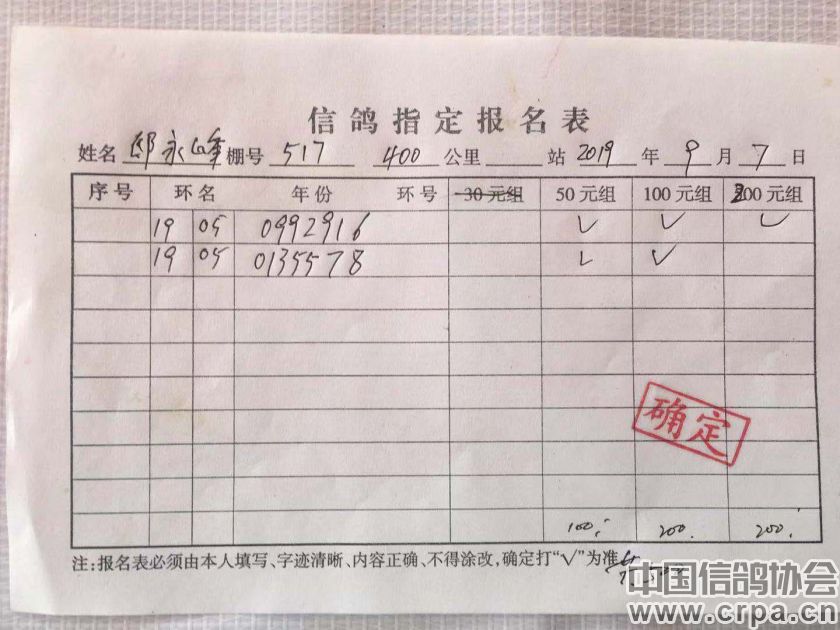 信鸽指定报名表
姓名 邸永峰 棚号 517 400 公里 站 2019 年 9 月 7 日
序号 环名 年份 环号 30元组 50元组 100元组 200元组
19 05 0992916 √ √ √
19 05 0135578 √ √
确定
100. 200. 200.
注:报名表必须由本人填写、字迹清晰、内容正确、不得涂改,确定打“√”为准
中国信鸽协会
www.crpa.cn